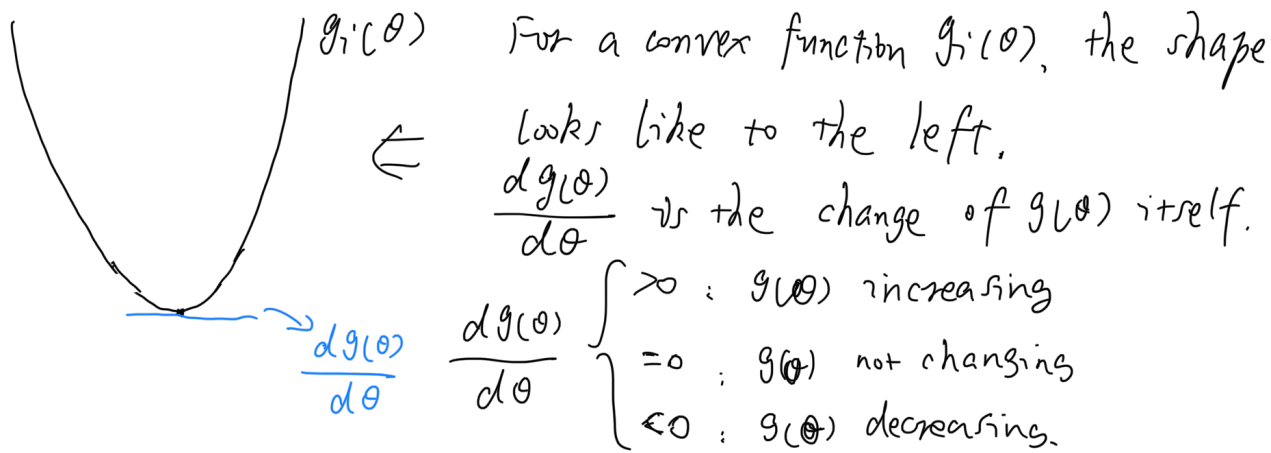 gᵢ(θ) For a convex function gᵢ(θ), the shape
⇐ looks like to the left.
dg(θ)/dθ is the change of g(θ) itself.
dg(θ)/dθ { >0 : g(θ) increasing
=0 : g(θ) not changing
<0 : g(θ) decreasing.
→ dg(θ)/dθ